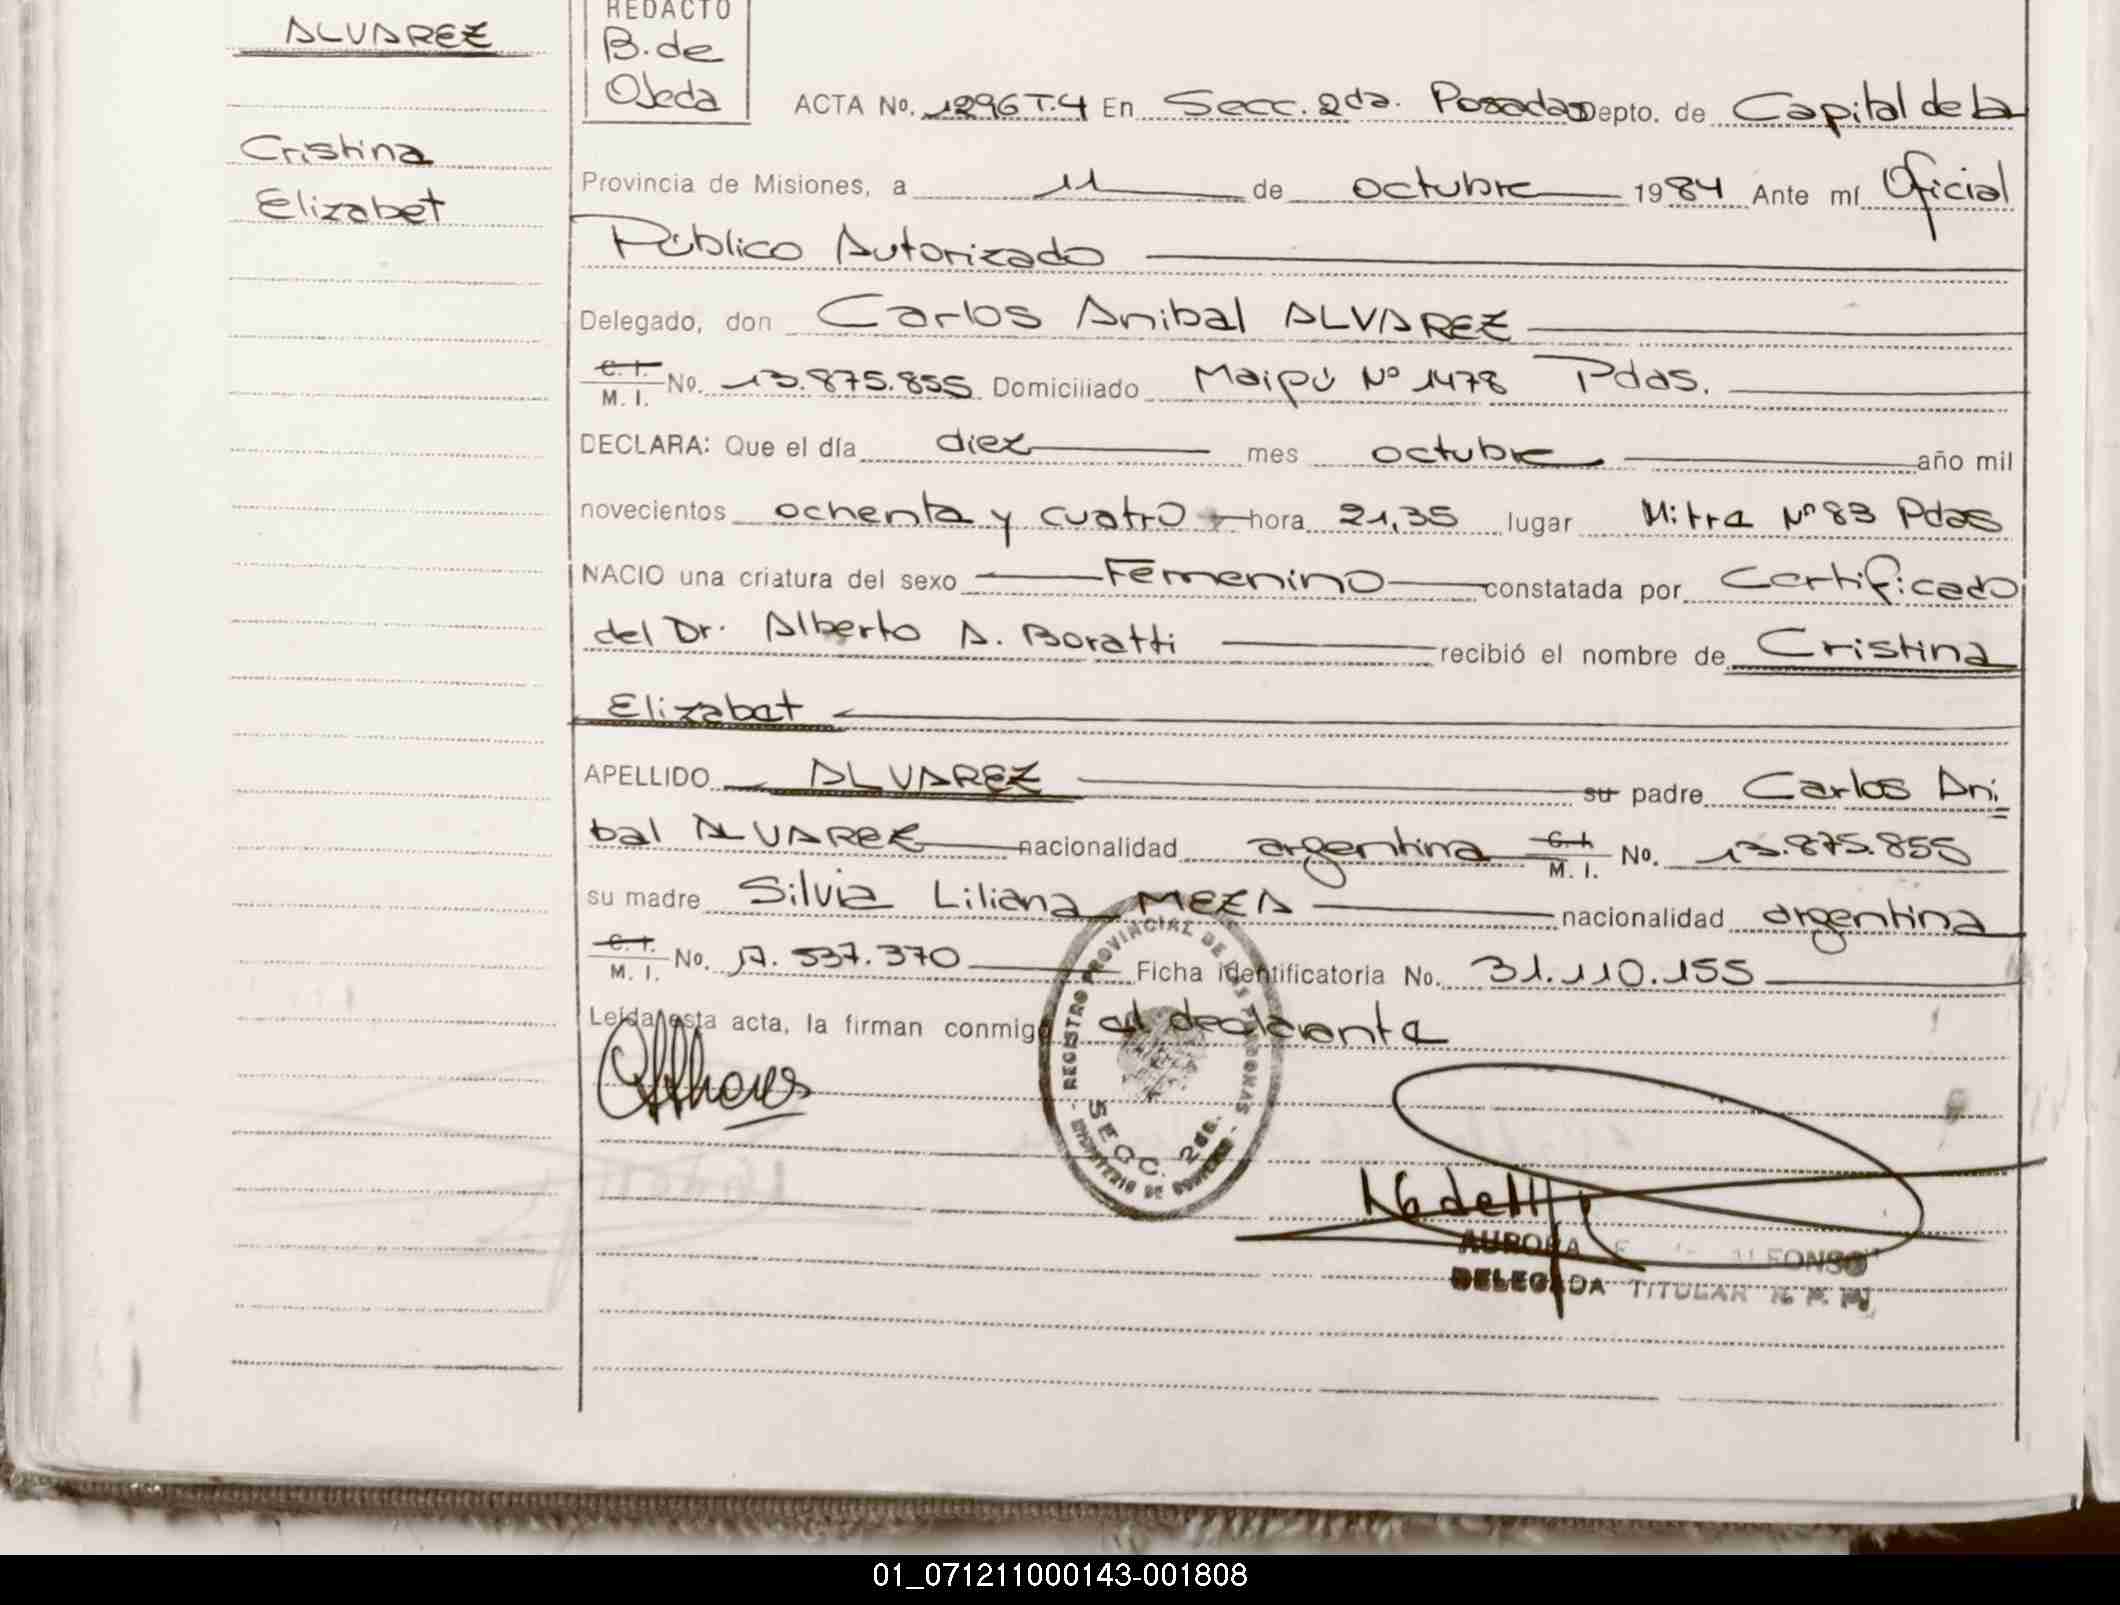 ALVAREZ
Cristina
Elizabet
REDACTO
B. de
Ojeda
ACTA No. 1296 T.4 En Secc. 2da. Posadas Depto. de Capital de la
Provincia de Misiones, a 11 de octubre 1984 Ante mí Oficial
Público Autorizado
Delegado, don Carlos Anibal ALVAREZ
C. I.
M. I. No. 13.875.855 Domiciliado Maipú Nº 1478 Pdas.
DECLARA: Que el día diez mes octubre año mil
novecientos ochenta y cuatro hora 21,35 lugar Mitre Nº 83 Pdas
NACIO una criatura del sexo Femenino constatada por Certificado
del Dr. Alberto A. Boratti recibió el nombre de Cristina
Elizabet
APELLIDO ALVAREZ su padre Carlos Ani
bal ALVAREZ nacionalidad argentina C. I. M. I. No. 13.875.855
su madre Silvia Liliana MEZA nacionalidad argentina
C. I.
M. I. No. 17.537.370 Ficha identificatoria No. 31.110.155
Leída esta acta, la firman conmigo el declarante
REGISTRO PROVINCIAL DE LAS PERSONAS
SECC. 2da.
MINISTERIO DE GOBIERNO
AURORA ALFONSO
DELEGADA TITULAR R. P. P.
01_071211000143-001808